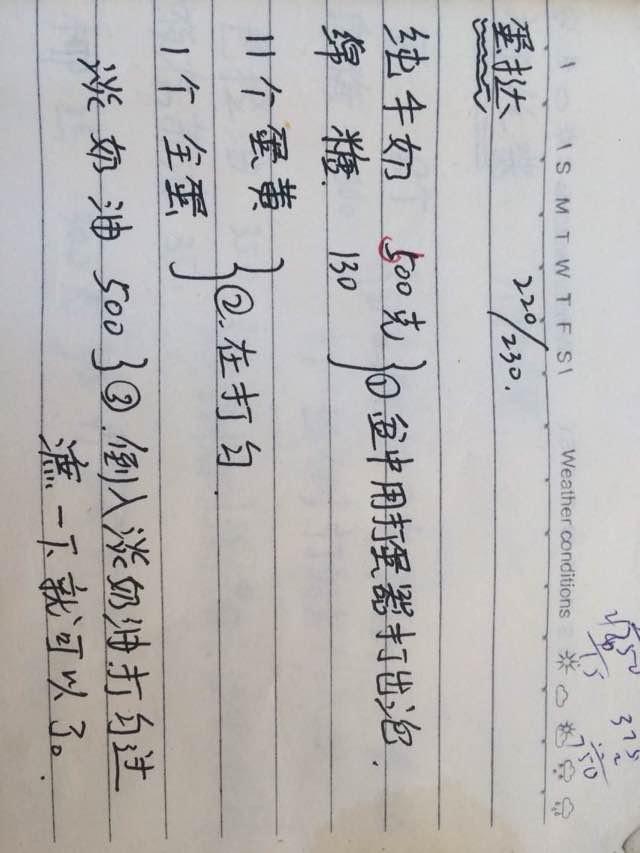 I S M T W T F S I Weather conditions
375
2
750
蛋挞 220/230.
纯牛奶 500克 } ①盆中用打蛋器打出泡.
绵糖. 130
11个蛋黄 } ②.在打匀.
1个全蛋
淡奶油 500 } ③.倒入淡奶油.打匀过
滤一下就可以了。